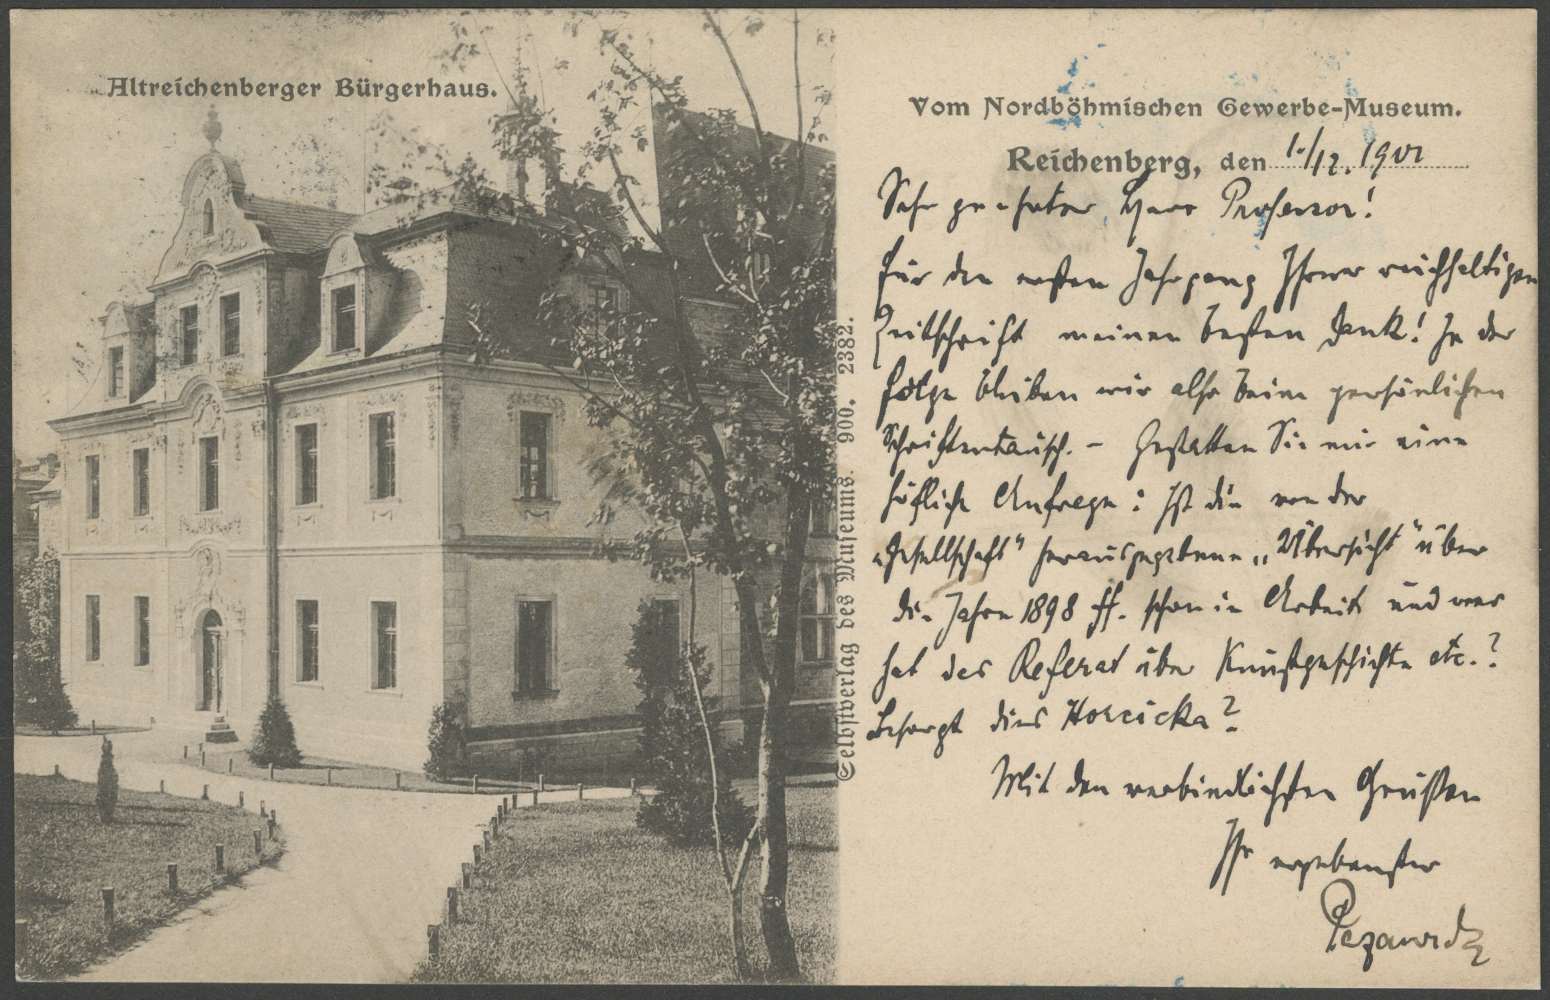 Altreichenberger Bürgerhaus.
Selbstverlag des Museums. 900. 2382.
Vom Nordböhmischen Gewerbe-Museum.
Reichenberg, den 1./12. 1901
Sehr geehrter Herr Professor!
Für den ersten Jahrgang Ihrer reichhaltigen
Zeitschrift meinen besten Dank! In der
Folge bleiben wir also beim persönlichen
Schriftentausch. – Gestatten Sie mir eine
höfliche Anfrage: Ist die von der
„Gesellschaft" herausgegebene „Übersicht" über
die Jahre 1898 ff. schon in Arbeit und wer
hat das Referat über Kunstgeschichte etc.?
Besorgt dies Horcicka?
Mit den verbindlichsten Grüßen
Ihr ergebenster
Pazaurek